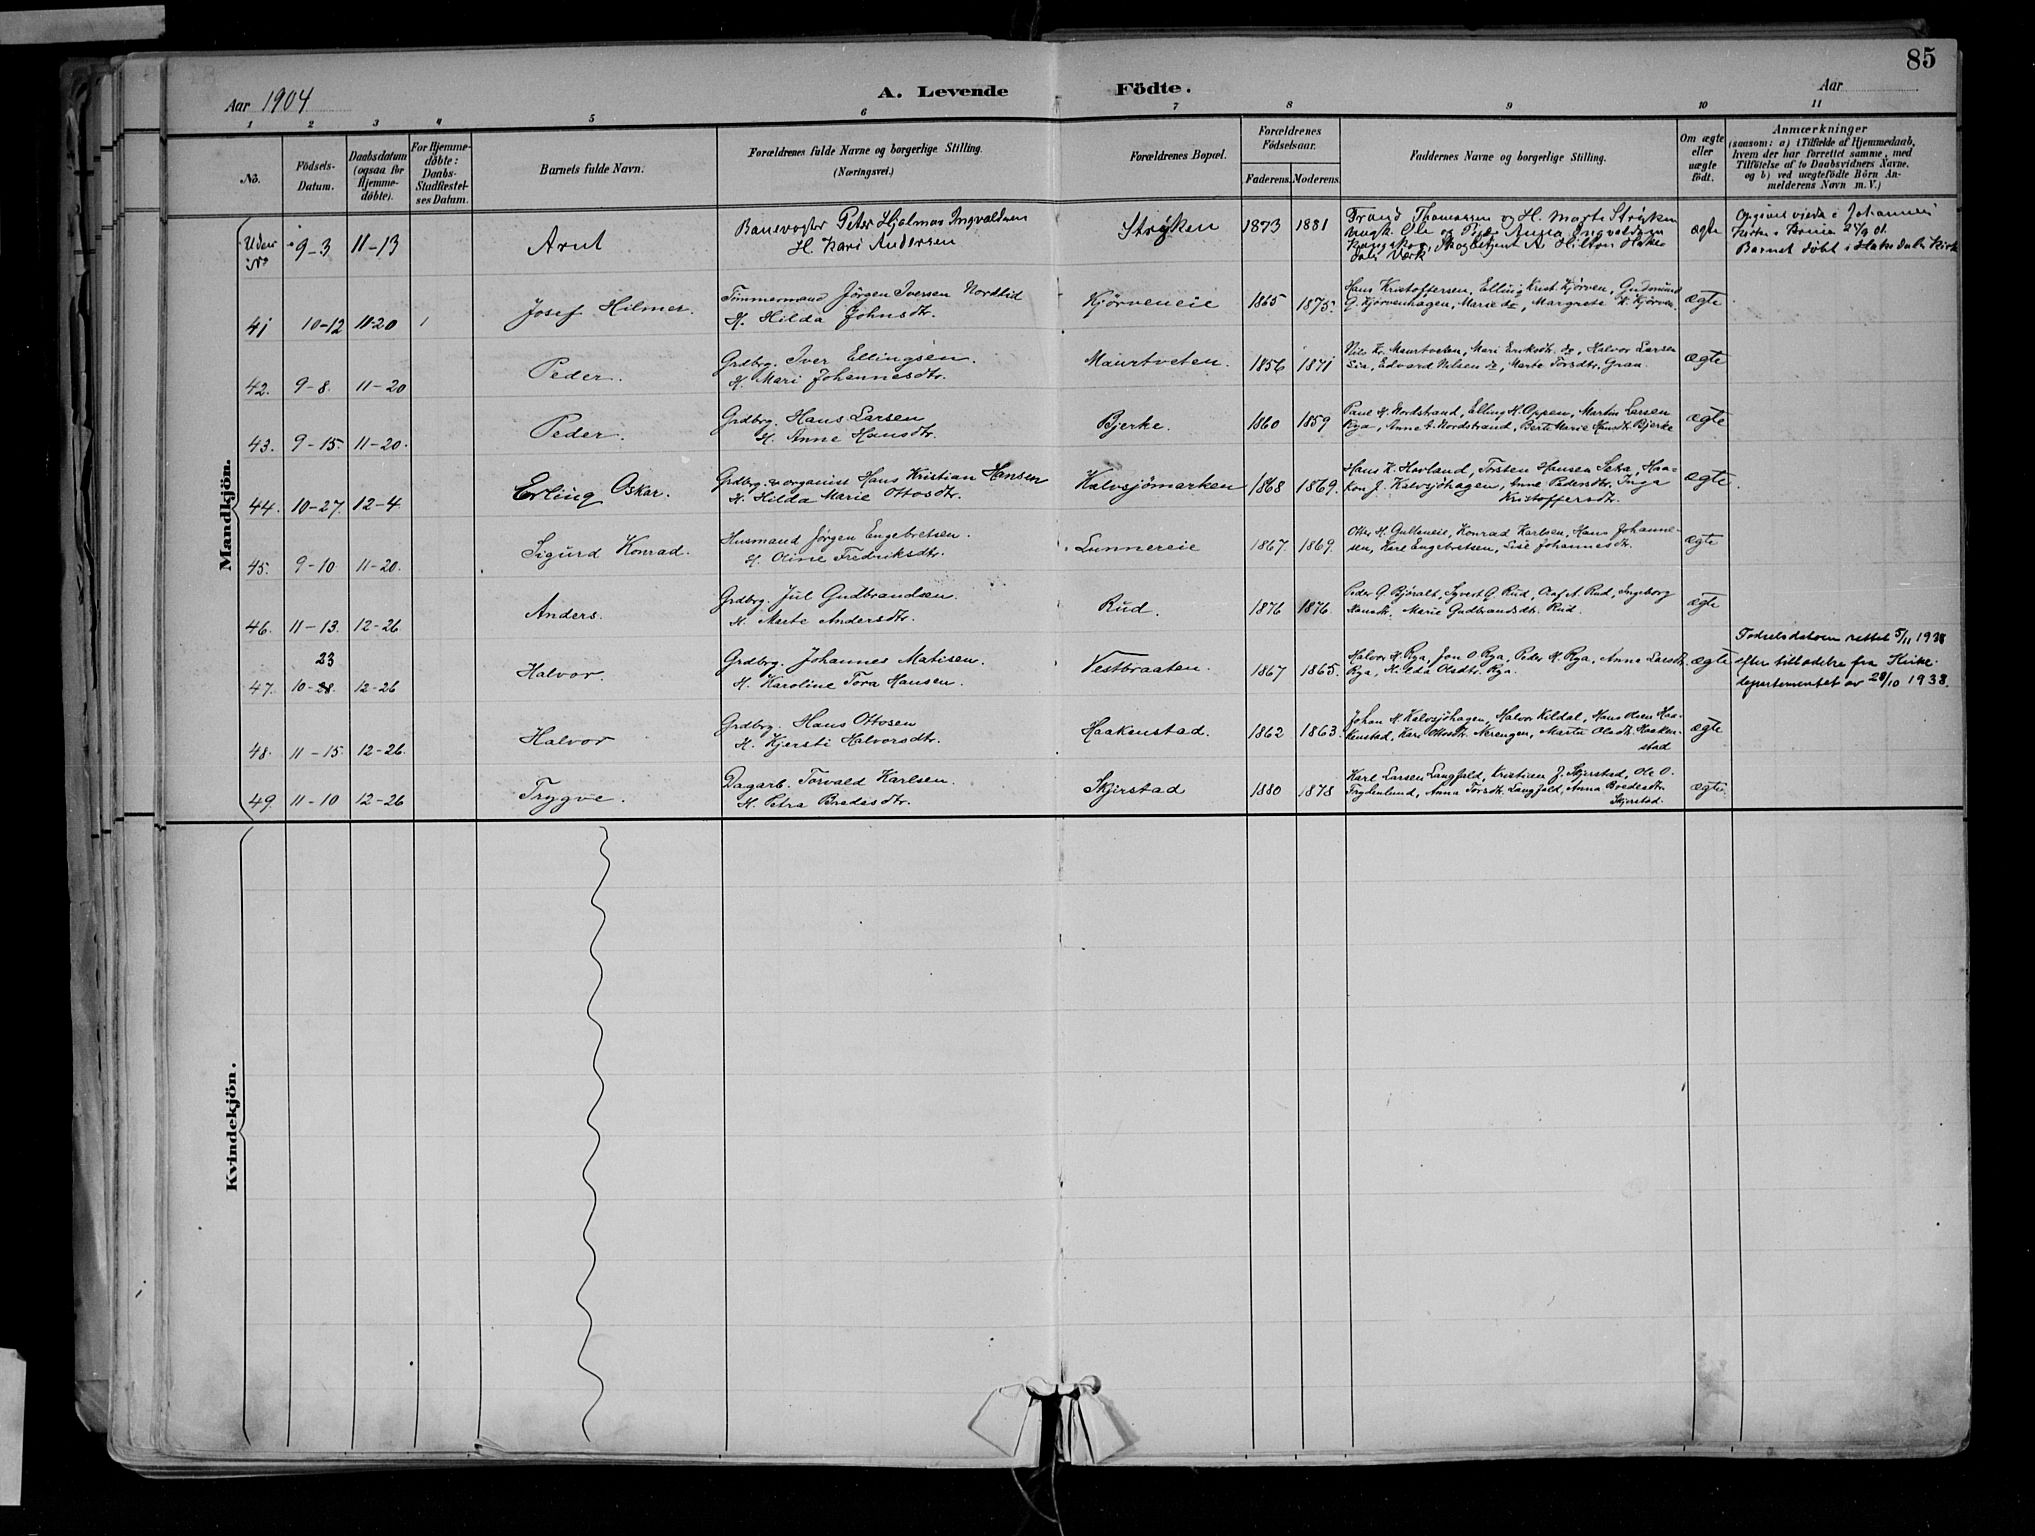 85
Aar 1904
A. Levende Födte.
Aar
1 2 3 4 5 6 7 8 9 10 11
No.
Födsels-Datum.
Daabsdatum (ogsaa for Hjemme-döbte).
For Hjemme-döbte: Daabs-Stadfæstel-ses Datum.
Barnets fulde Navn.
Forældrenes fulde Navne og borgerlige Stilling. (Næringsvei.)
Forældrenes Bopæl.
Forældrenes Födselsaar.
Faderens. Moderens.
Faddernes Navne og borgerlige Stilling.
Om ægte eller uægte födt.
Anmærkninger
(saasom: a) i Tilfælde af Hjemmedaab,
hvem der har forrettet samme, med
Tilföielse af to Daabsvidners Navne.
og b) ved uægtefödte Börn An-
melderens Navn m. V.)
Mandkjön.
Uden No 9-3 11-13 Arnt
Banevogter Peter Hjalmar Ingvaldsen
H. Kari Andersen
Stryken 1873 1881
Trond Thomassen og H. Marte Stryken
Ungk. Ole og Anna Ingvaldsen
Skogbetjent A. Hilton Hake-
dals Værk
ægte
Opgives viede i Johannes
Kirke i 24/9 01.
Barnet døbt i Hakedals Kirke
41 10-12 11-20 Josef Hilmer.
Tømmermand Jörgen Iversen Nordlid
H. Hilda Johnsdtr.
Kjörveneie 1865 1875.
Hans Kristoffersen, Elling Krist. Kjörven, Gudmund
G. Kjörvenhagen, Marie do, Margrete K. Kjörven.
ægte
42. 9-8. 11-20 Peder.
Grdbrg. Iver Ellingsen.
H. Mari Johannesdtr.
Maurtveten. 1856 1871
Nils Kr. Maurtveten, Mari Eriksdtr. do, Halvor Larsen
Lia, Edvard Nilsen do, Marte Torsdtr. Gran.
ægte
43. 9-15. 11-20. Peder.
Grdbrg. Hans Larsen
H. Anne Hansdtr.
Bjerke. 1860 1859
Paul H. Nordstrand, Elling H. Oppen, Martin Larsen
Rya, Anne A. Nordstrand, Berte Marie Hansdtr. Bjerke
ægte
44. 10-27. 12-4 Erling Oskar.
Grdbrg. & organist Hans Kristian Hansen
H. Hilda Marie Ottosdtr.
Kalvsjömarken 1868 1869.
Hans K. Hovland, Torsten Hansen Seka, Haa-
kon J. Kalvsjöhagen, Anne Pedersdtr. Inga
Kristoffersdtr.
ægte.
45. 9-10 11-20. Sigurd Konrad.
Husmand Jörgen Engebretsen.
H. Oline Fredriksdtr.
Lunnereie 1867. 1869.
Otter H. Gulleneie, Konrad Karlsen, Hans Johanne-
sen, Karl Engebretsen, Lise Johannesdtr.
ægte
46. 11-13. 12-26. Anders.
Grdbrg. Jul Gudbrandsen.
H. Marte Andersdtr.
Rud. 1876 1876.
Peder G. Björalt, Syvert G. Rud, Olaf A. Rud, Ingeborg
Hansdtr. Marie Gudbrandsdtr. Rud.
ægte
23
47. 10-28. 12-26 Halvor.
Grdbrg. Johannes Matisen.
H. Karoline Tora Hansen.
Vestbraaten. 1867 1865.
Halvor H. Rya, Jon O Rya, Peder H. Rya, Anna Larsdtr.
Rya, Hilda Olsdtr. Rya.
ægte
Fødselsdatoen rettet 5/11 1938
efter tilladelse fra Kirke-
departementet av 28/10 1938.
48. 11-15. 12-26. Halvor
Grdbrg. Hans Ottosen
H. Kjersti Halvorsdtr.
Haakenstad. 1862 1863.
Johan H. Kalvsjöhagen, Halvor Kildal, Hans Olsen Haa-
kenstad, Kari Ottosdtr. Nerengen, Marte Olsdtr. Haaken-
stad
ægte
49 11-10 12-26 Trygve.
Dagarb. Torvald Karlsen.
H. Petra Bredesdtr.
Skjerstad 1880 1878
Karl Larsen Langfald, Kristian J. Skjerstad, Ole O.
Frydenlund, Anna Torsdtr. Langfald, Anna Bredesdtr.
Skjerstad.
ægte.
Kvindekjön.